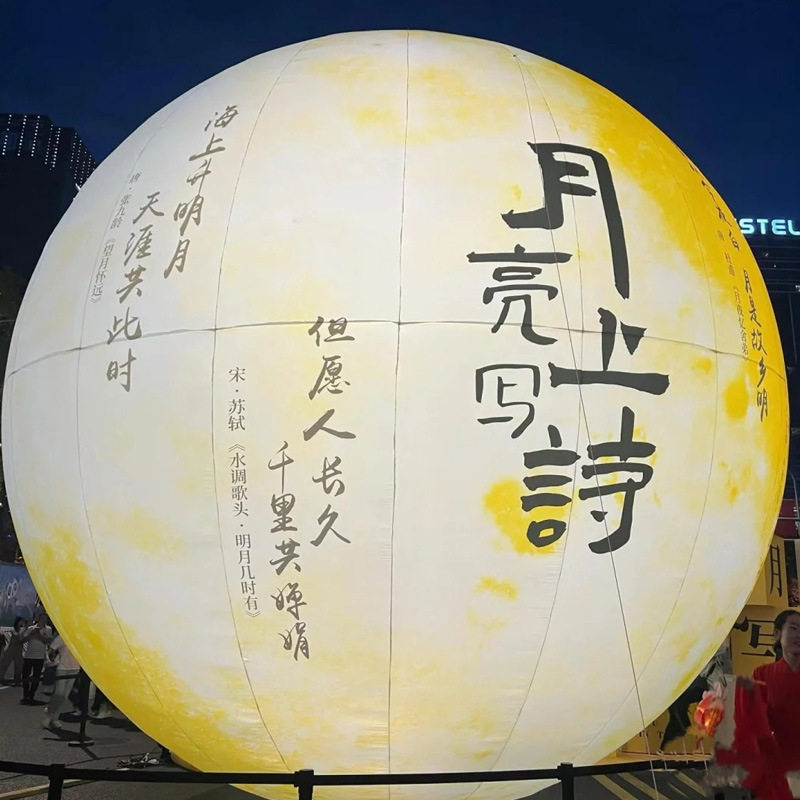 STEL
月是故乡明
唐·杜甫《月夜忆舍弟》
月亮上写詩
但愿人长久
千里共婵娟
宋·苏轼《水调歌头·明月几时有》
海上升明月
天涯共此时
唐·张九龄《望月怀远》